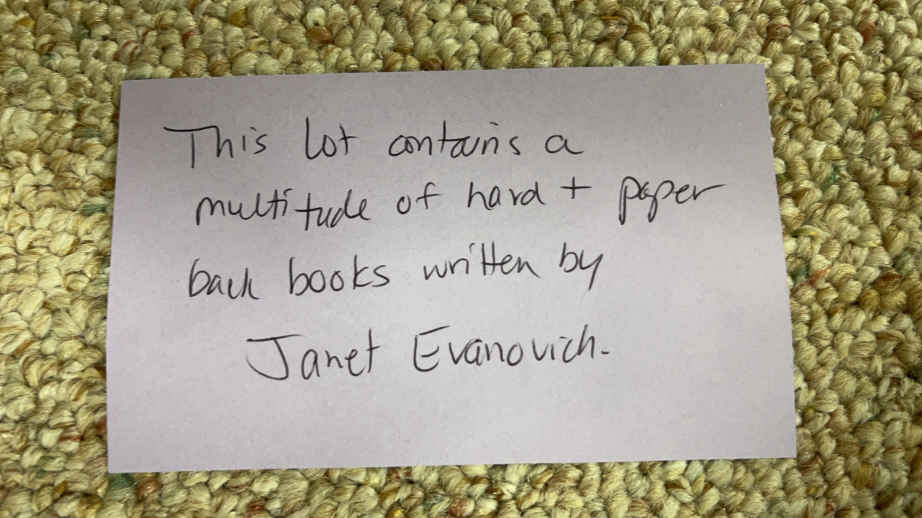 This lot contains a
multitude of hard + paper
back books written by
Janet Evanovich.